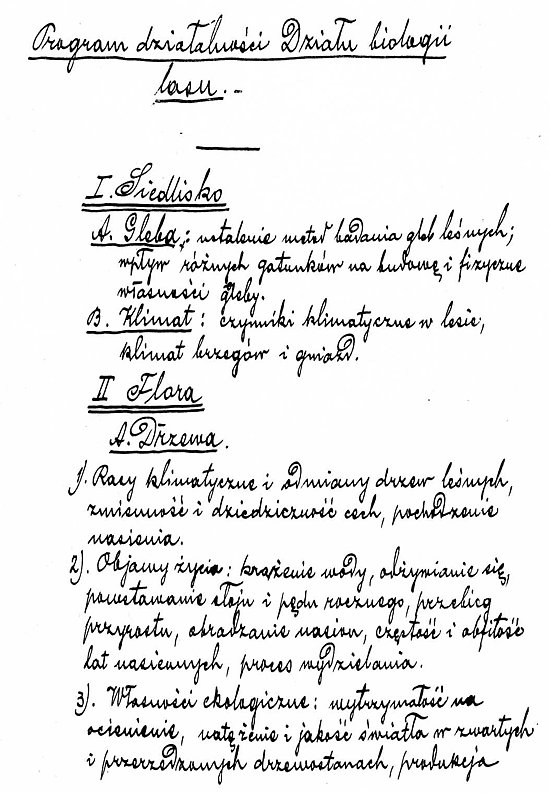 Program działalności Działu biologii
lasu.-
I. Siedlisko
A. Gleba,: ustalenie metod badania gleb leśnych;
wpływ różnych gatunków na budowę i fizyczne
własności gleby.
B. Klimat: czynniki klimatyczne w lesie,
klimat brzegów i gniazd.
II Flora
A. Drzewa.
1). Rasy klimatyczne i odmiany drzew leśnych,
zmienność i dziedziczność cech, pochodzenie
nasienia.
2). Objawy życia: krążenie wody, odżywianie się,
powstawanie słoju i pędu rocznego, przebieg
przyrostu, obradzanie nasion, częstość i obfitość
lat nasiennych, proces wydzielania.
3). Własności ekologiczne: wytrzymałość na
ocienienie, natężenie i jakość światła w zwartych
i przerzedzonych drzewostanach, produkcja